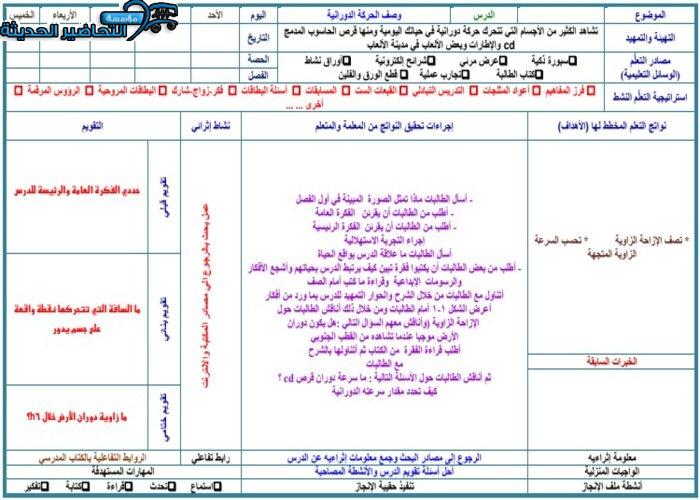 مؤسسة
التحاضير الحديثة
الموضوع
الدرس
وصف الحركة الدورانية
اليوم
الأحد
الأربعاء
الخميس
التهيئة والتمهيد
تشاهد الكثير من الأجسام التي تتحرك حركة دورانية في حياتك اليومية ومنها قرص الحاسوب المدمج
cd والإطارات وبعض الألعاب في مدينة الألعاب
التاريخ
مصادر التعلم
(الوسائل التعليمية)
سبورة ذكية
عرض مرئي
شرائح إلكترونية
أوراق نشاط
كتاب الطالبة
تجارب عملية
قطع الورق والفلين
الحصة
الفصل
استراتيجية التعلم النشط
فرز المفاهيم
أعواد المثلجات
التدريس التبادلي
القبعات الست
المسابقات
أسئلة البطاقات
فكر-زواج-شارك
البطاقات المروحية
الرؤوس المرقمة
أخرى ... ...
نواتج التعلم المخطط لها (الأهداف)
إجراءات تحقيق النواتج من المعلمة والمتعلم
نشاط إثرائي
التقويم
* تصف الإزاحة الزاوية * تحسب السرعة
الزاوية المتجهة
الخبرات السابقة
- أسأل الطالبات ماذا تمثل الصورة المبينة في أول الفصل
- أطلب من الطالبات أن يقرئن الفكرة العامة
- أطلب من الطالبات أن يقرئن الفكرة الرئيسية
إجراء التجربة الاستهلالية
أسأل الطالبات ما علاقة الدرس بواقع الحياة
- أطلب من بعض الطالبات أن يكتبوا فقرة تبين كيف يرتبط الدرس بحياتهم وأشجع الأفكار
والرسومات الإبداعية وقراءة ما كتب أمام الصف
أتناول مع الطالبات من خلال الشرح والحوار التمهيد للدرس بما ورد من أفكار
أعرض الشكل ١-١ أمام الطالبات ومن خلال ذلك أناقش الطالبات حول
الإزاحة الزاوية (وأناقش معهم السؤال التالي :هل يكون دوران
الأرض موجبا عندما تشاهده من القطب الجنوبي
أطلب قراءة الفقرة من الكتاب ثم أتناولها بالشرح
مع الطالبات
ثم أناقش الطالبات حول الأسئلة التالية : ما سرعة دوران قرص cd ؟
كيف تحدد مقدار سرعته الدورانية
عمل بحث بالرجوع الي مصادر المكتبة والانترنت
تقويم قبلي
حددي الفكرة العامة والرئيسة للدرس
تقويم بنائي
ما المسافة التي تتحركها نقطة واقعة
على جسم يدور
تقويم ختامي
ما زاوية دوران الأرض خلال ٦h؟
معلومة إثرائيه
الرجوع إلى مصادر البحث وجمع معلومات إثراءيه عن الدرس
رابط تفاعلي
الروابط التفاعلية بالكتاب المدرسي
الواجبات المنزلية
أحل أسئلة تقويم الدرس والأنشطة المصاحبة
المهارات المستهدفة
أنشطة ملف الإنجاز
تنفيذ حقيبة الإنجاز
استماع
تحدث
قراءة
كتابة
تفكير